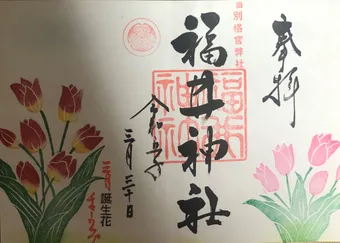 奉拝
旧別格官幣社
福井神社
福井
神社
令和六年
三月三十日
三月 誕生花
チューリップ